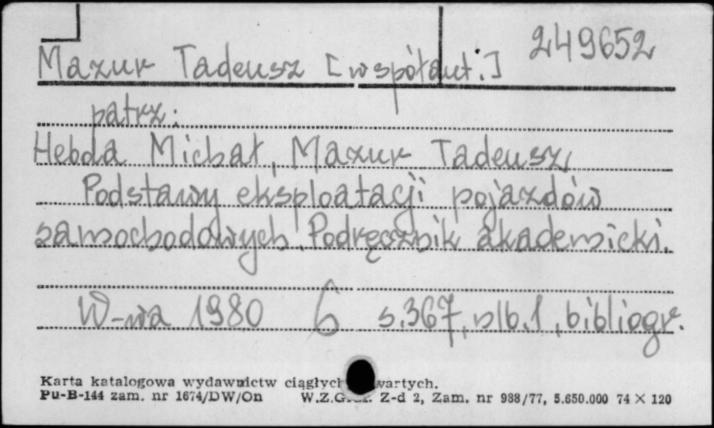 249652
Mazur Tadeusz [współaut.]
patrz:
Hebda Michał, Mazur Tadeusz
Podstawy eksploatacji pojazdów
samochodowych. Podręcznik akademicki.
W-wa 1980 6 s.367, nlb.1, bibliogr.
Karta katalogowa wydawnictw ciągłych wartych.
Pu-B-144 zam. nr 1674/DW/On W.Z.G. Z-d 2, Zam. nr 988/77, 5.650.000 74 × 120